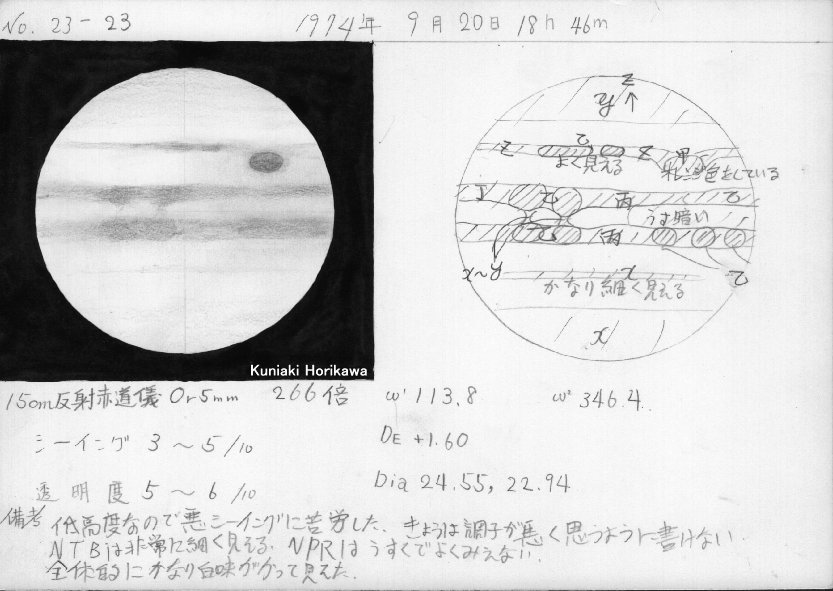 No. 23-23 1974年 9月 20日 18h 46m
Z
y↑
Z 乙 Z 甲
よく見える
オレンジ色をしている
乙 丙 乙
うす暗い
乙 丙
x~y x 乙
かなり細く見える
x
Kuniaki Horikawa
15cm反射赤道儀 Or5mm 266倍 ω' 113.8 ω² 346.4
シーイング 3 ~ 5/10 DE +1.60
透明度 5 ~ 6/10 Dia 24.55, 22.94
備考 低高度なので悪シーイングに苦労した. きょうは調子が悪く思うように書けない.
NTBは非常に細く見える. NPRはうすくてよくみえない.
全体的にかなり白味がかって見えた.